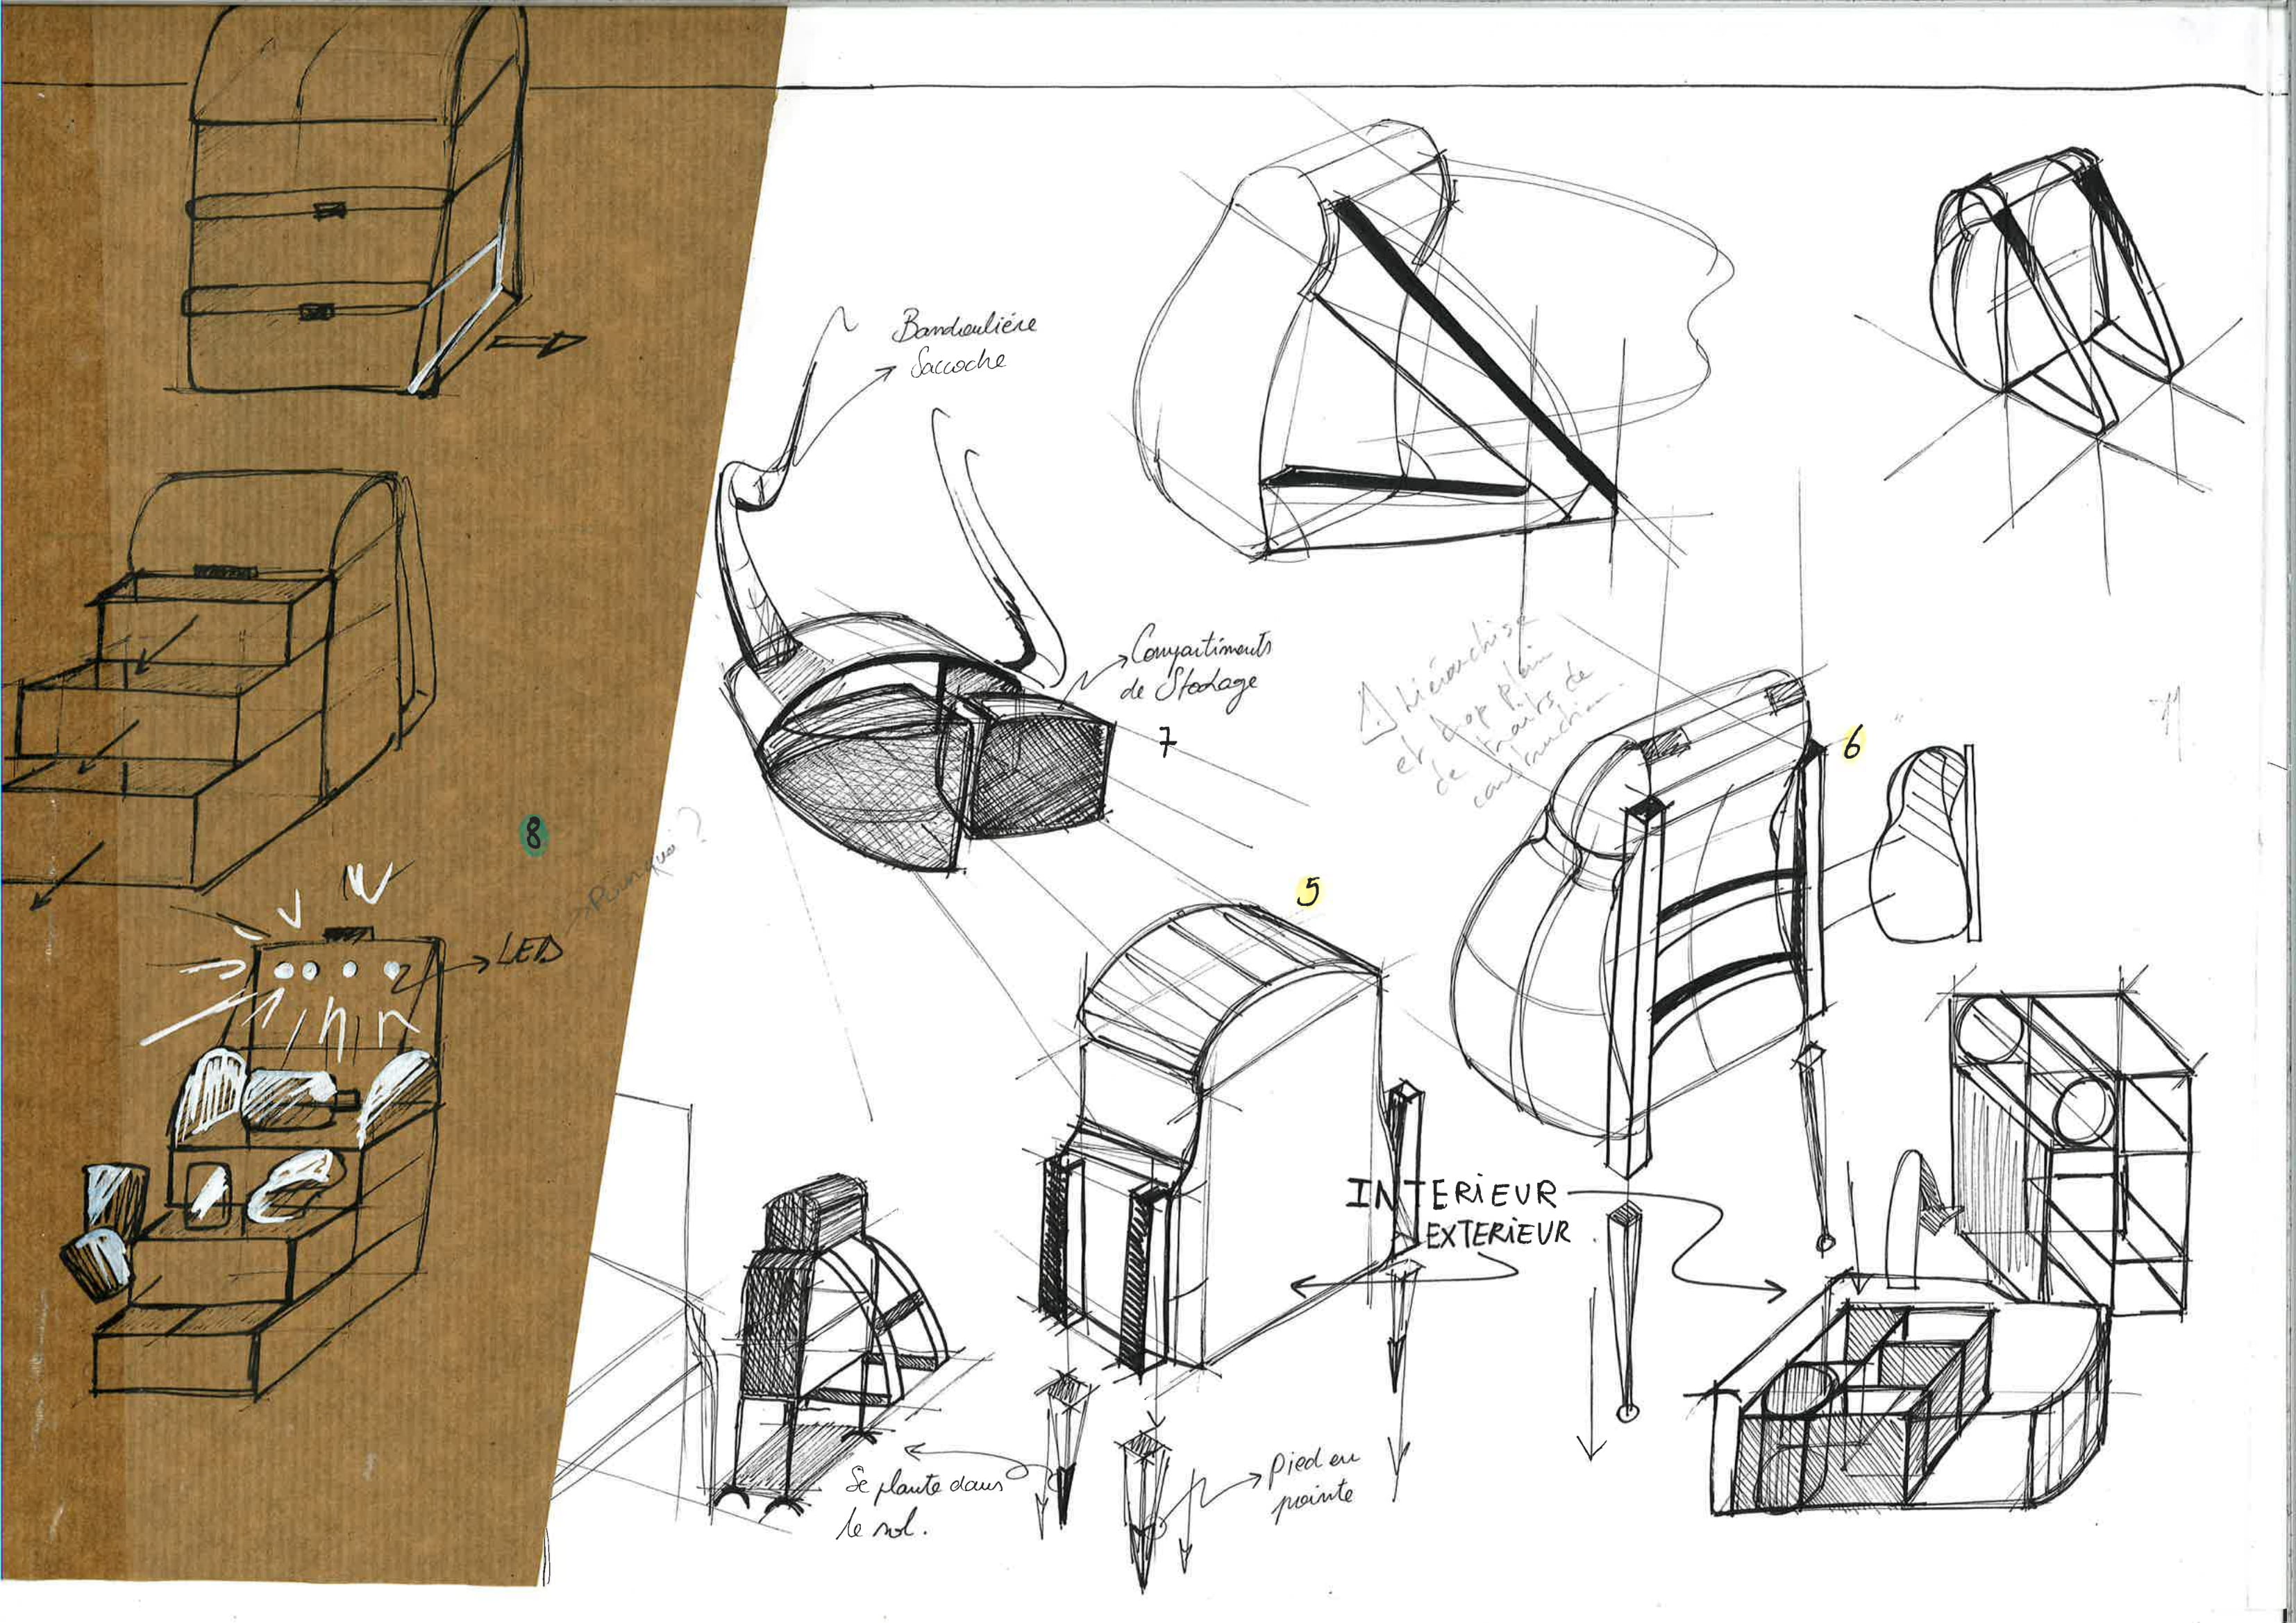 Bandoulière
Saccoche
Compartiments
de Stockage
7
⚠ hiérarchise
et trop plein
de traits de
construction.
6
8
Pourquoi ?
LED
5
INTERIEUR
EXTERIEUR
Se plante dans
le sol.
Pied en
pointe